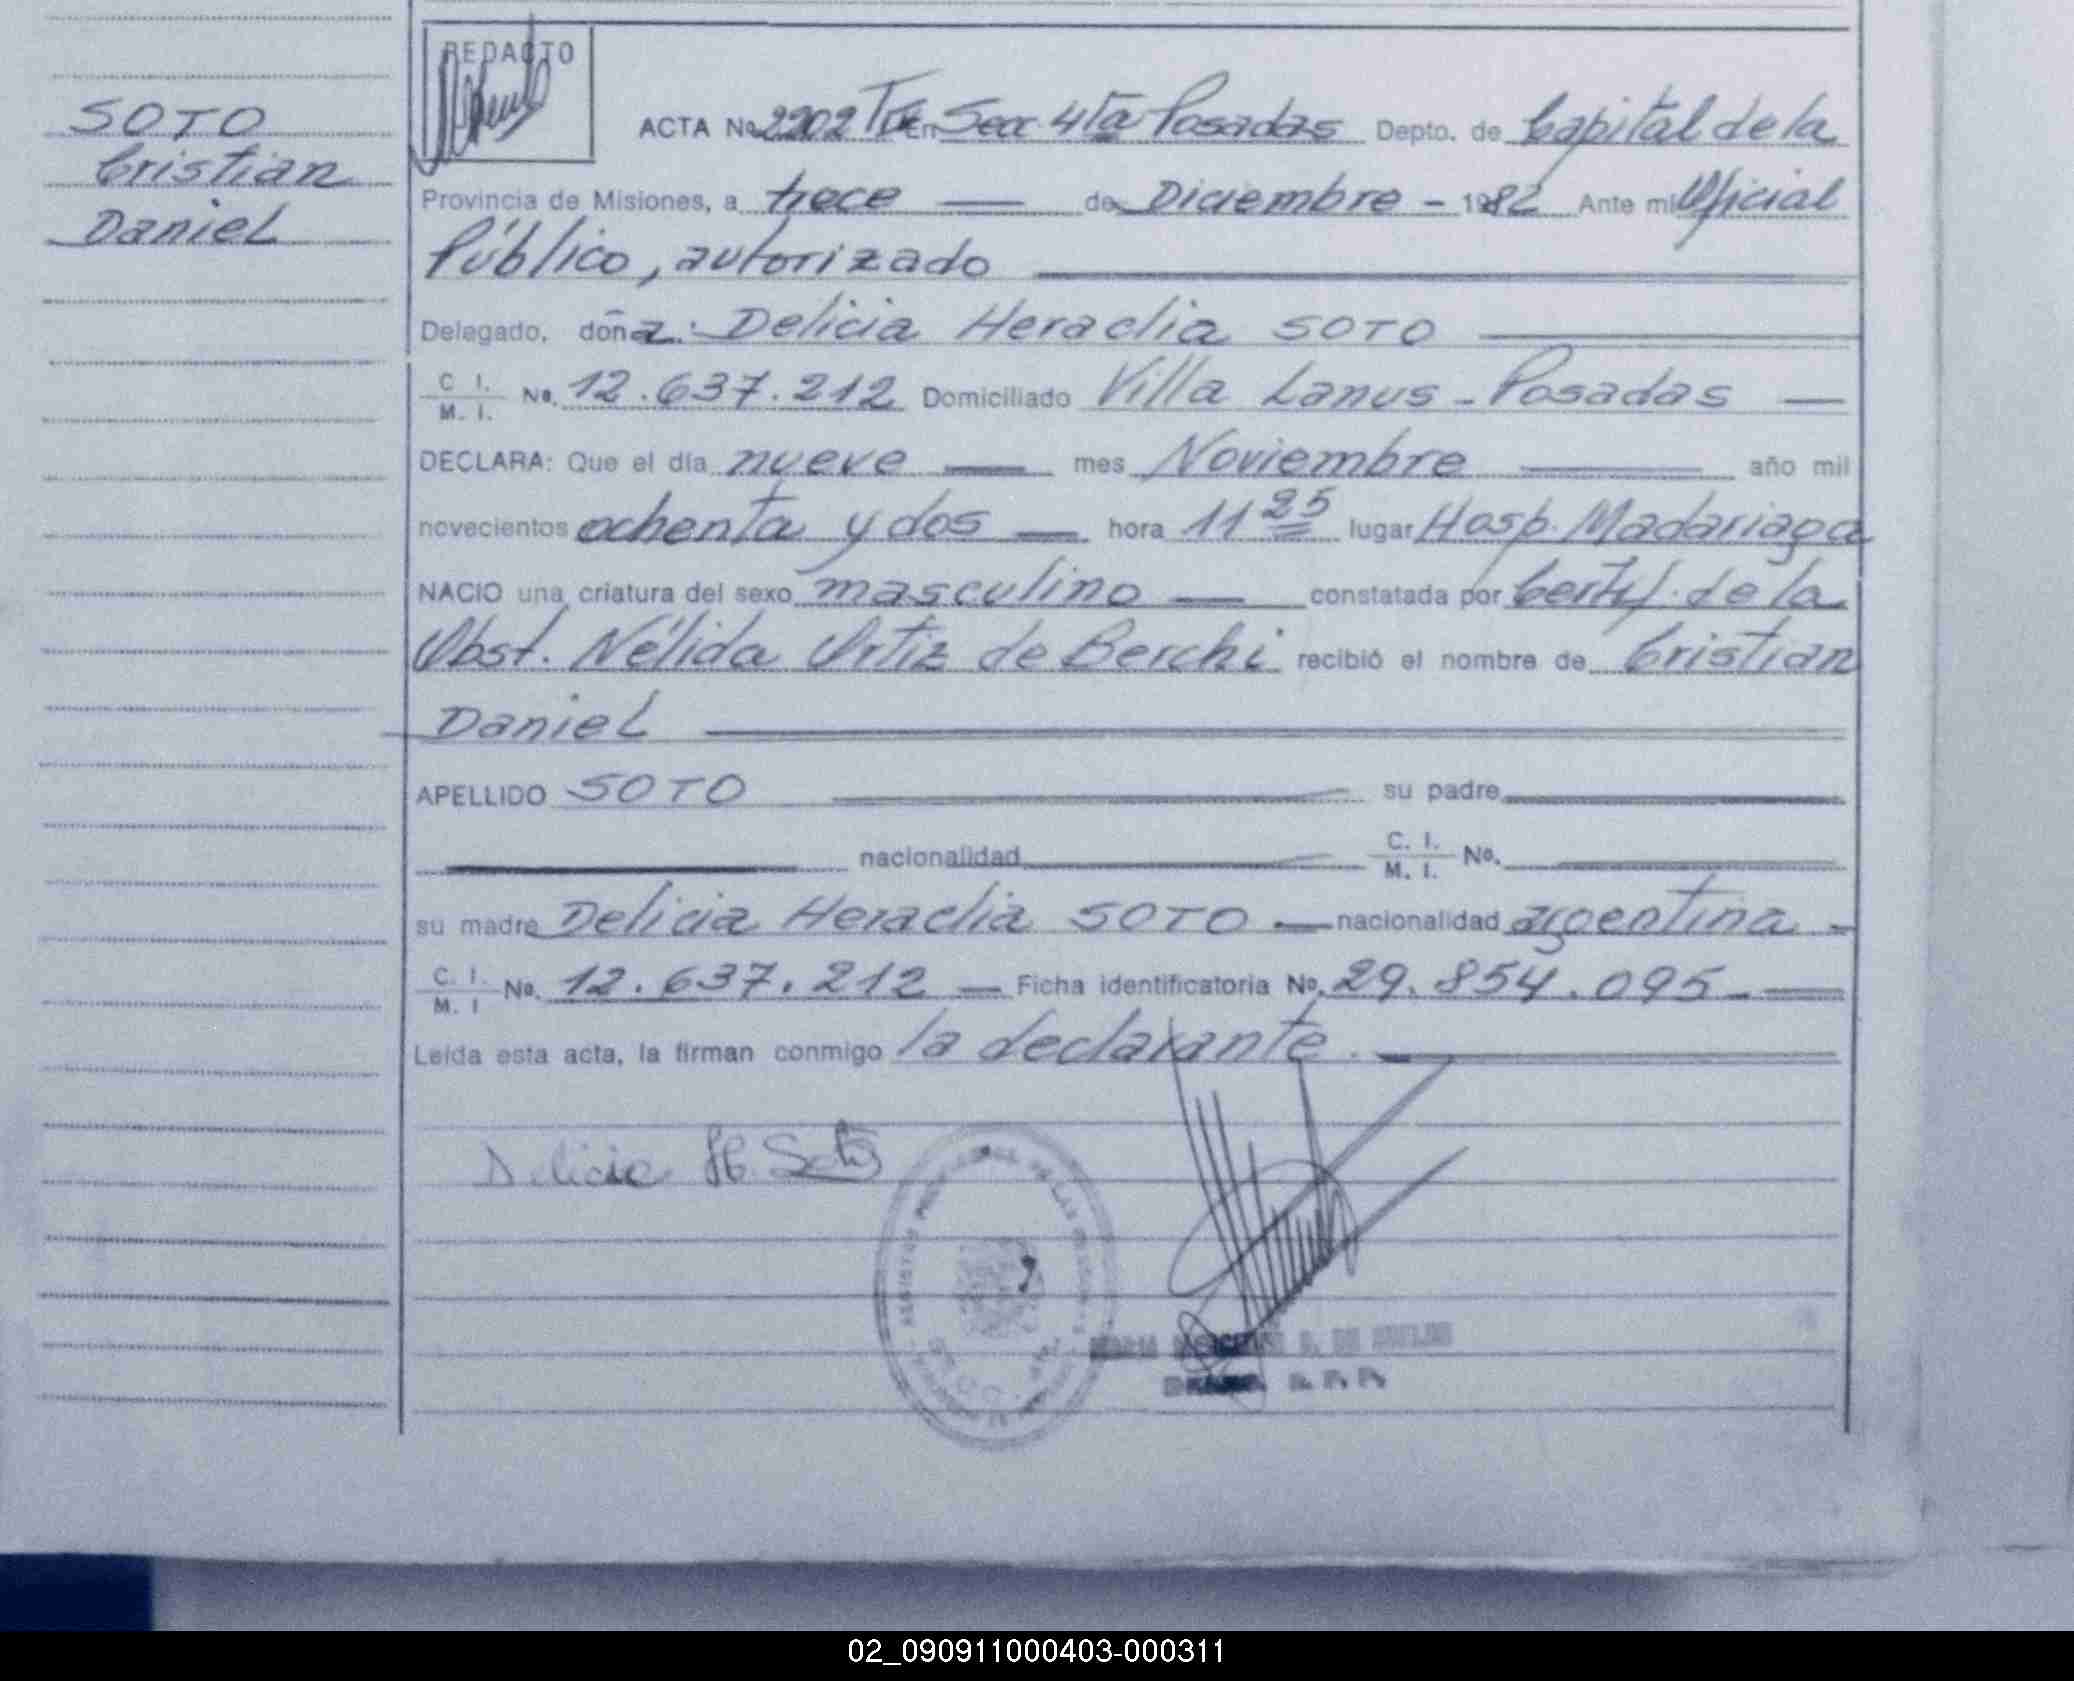 SOTO
Cristian
Daniel
REDACTO
ACTA No 2202 Tº 5 En Secc. 4ta Posadas Depto. de Capital de la
Provincia de Misiones, a trece — de Diciembre - 1982 Ante mi Oficial
Público, autorizado
Delegado, doña: Delicia Heraclia SOTO
C I. / M. I. No. 12.637.212 Domiciliado Villa Lanus - Posadas —
DECLARA: Que el día nueve — mes Noviembre — año mil
novecientos ochenta y dos — hora 11 25 lugar Hosp. Madariaga
NACIO una criatura del sexo masculino — constatada por Certif. de la
Obst. Nélida Ortiz de Berchi recibió el nombre de Cristian
Daniel
APELLIDO SOTO — su padre
nacionalidad — C. I. / M. I. No.
su madre Delicia Heraclia SOTO — nacionalidad argentina -
C. I. / M. I No. 12.637.212 — Ficha identificatoria No. 29.854.095 -
Leída esta acta, la firman conmigo la declarante.
Delicia H. Soto
02_090911000403-000311